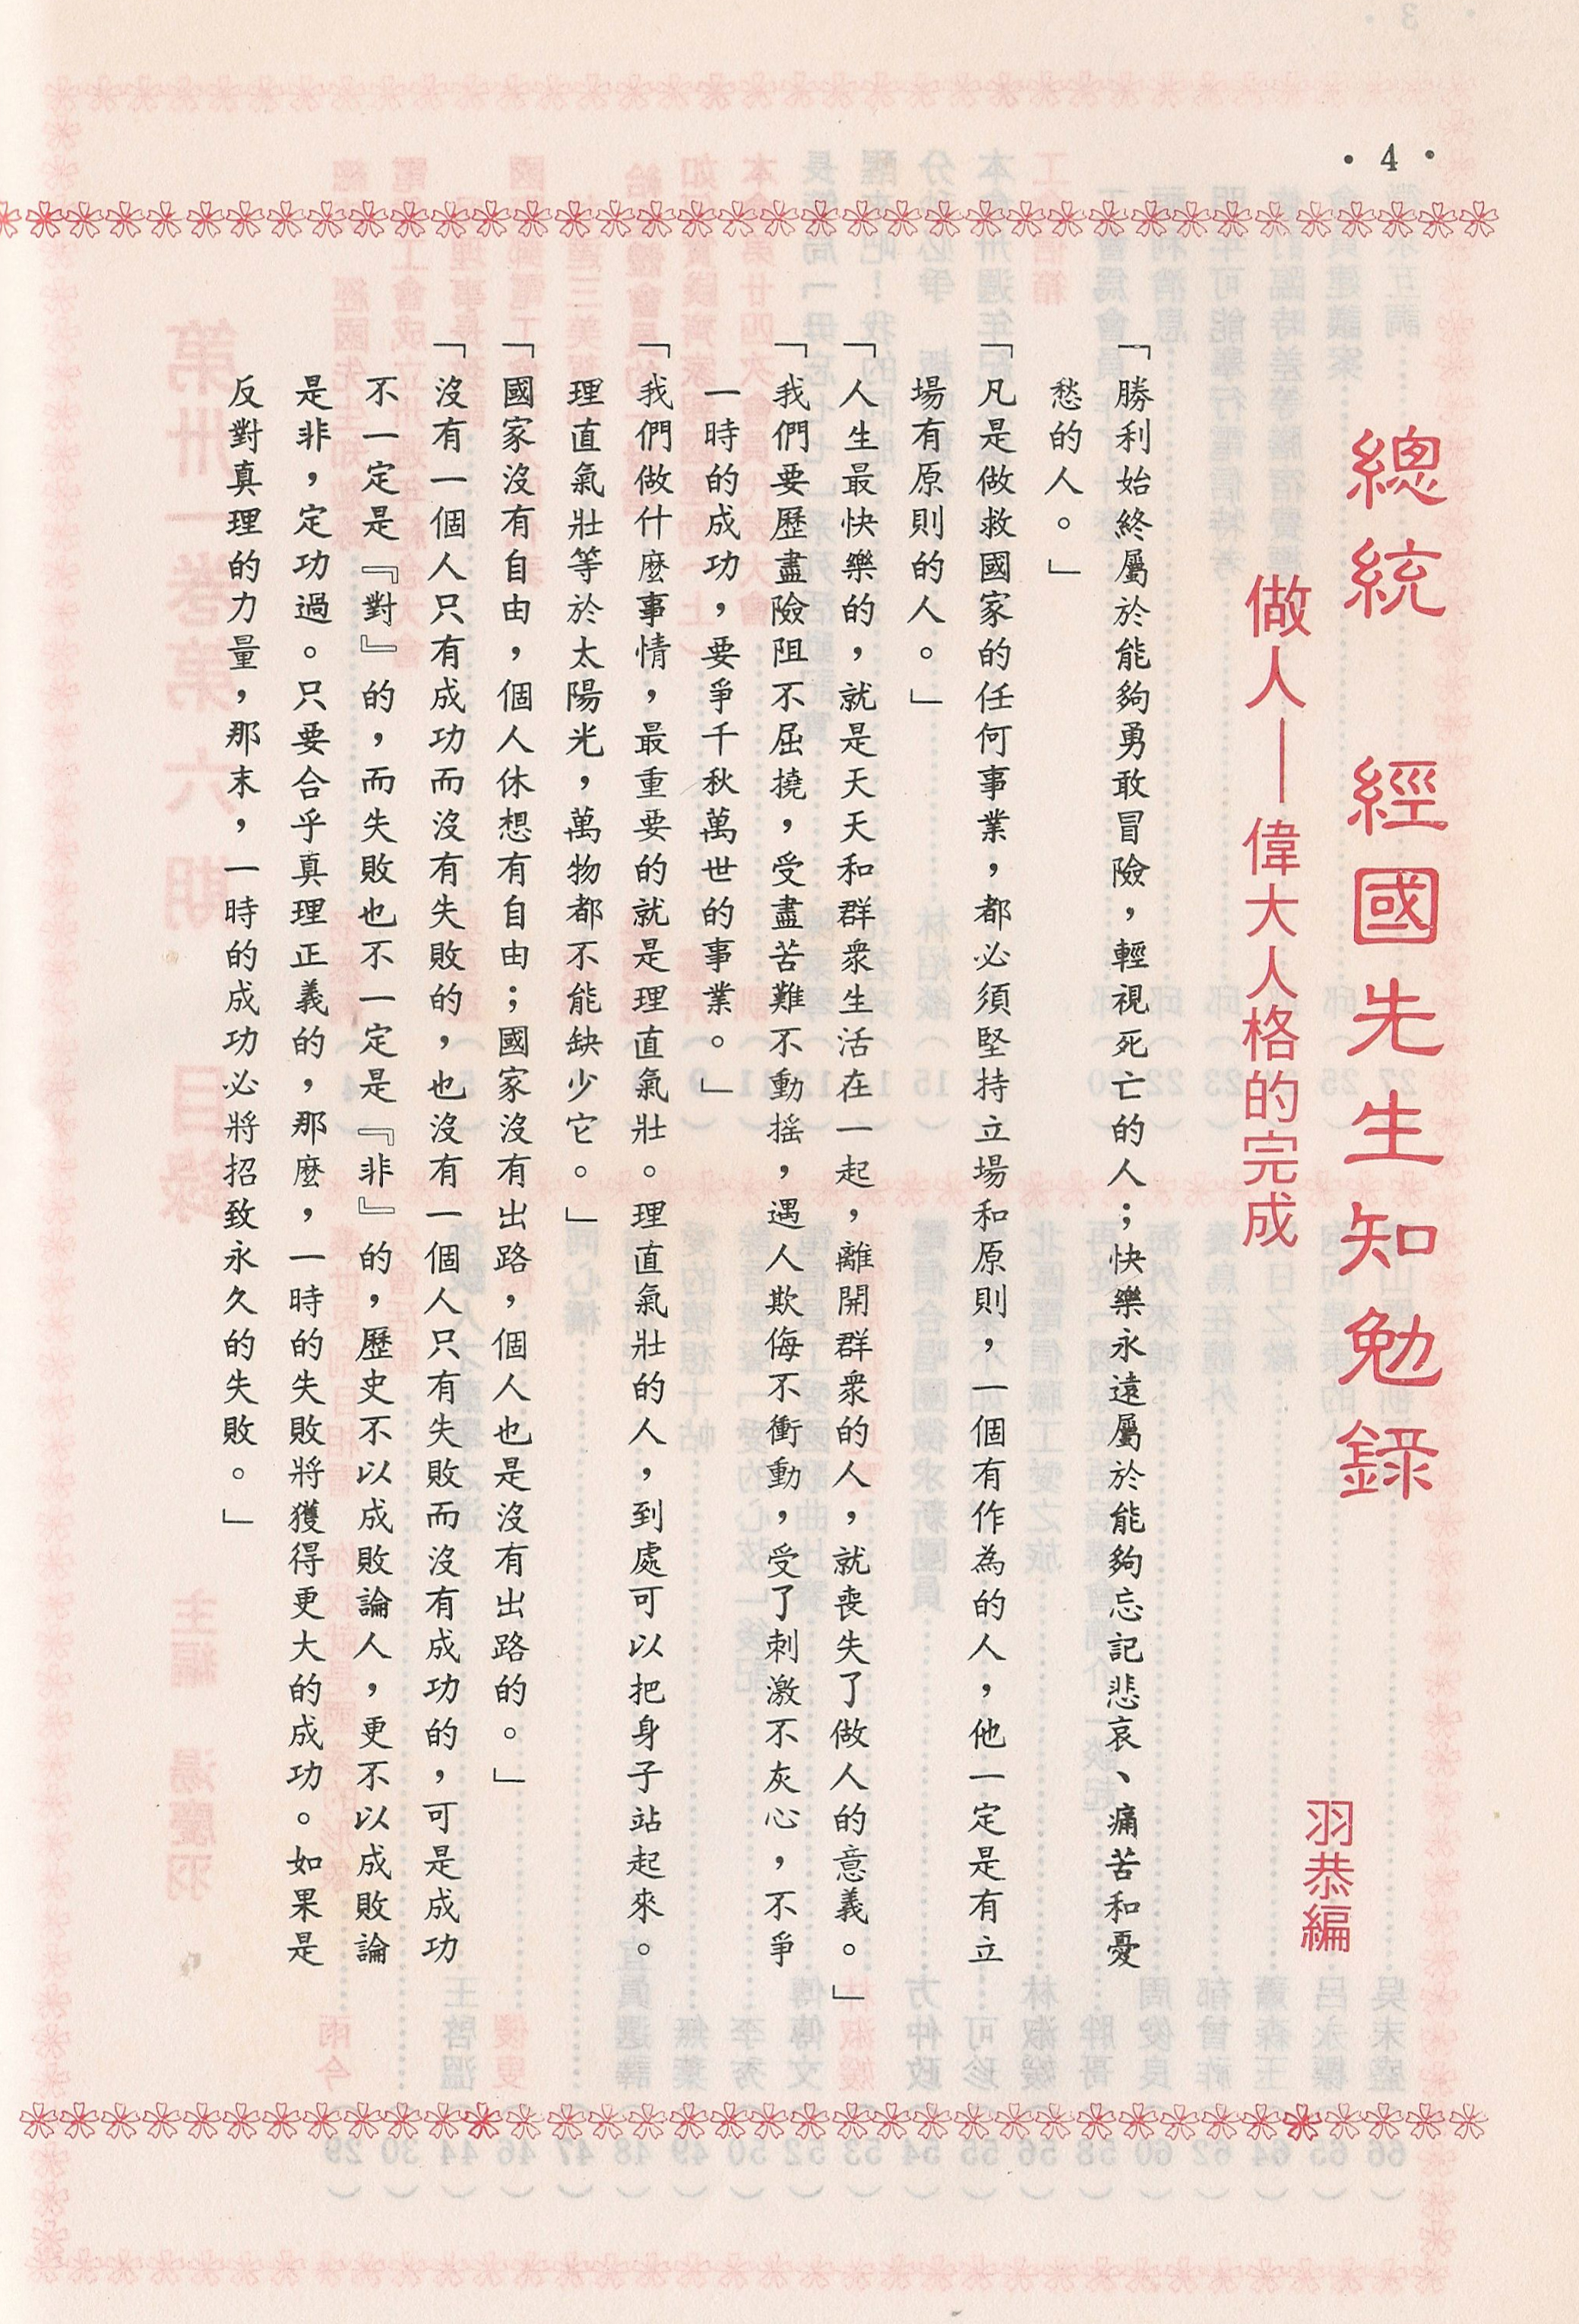 ・4・
總統　經國先生知勉錄
做人——偉大人格的完成
羽恭編
「勝利始終屬於能夠勇敢冒險，輕視死亡的人；快樂永遠屬於能夠忘記悲哀、痛苦和憂
愁的人。」
「凡是做救國家的任何事業，都必須堅持立場和原則，一個有作為的人，他一定是有立
場有原則的人。」
「人生最快樂的，就是天天和群衆生活在一起，離開群衆的人，就喪失了做人的意義。」
「我們要歷盡險阻不屈撓，受盡苦難不動搖，遇人欺侮不衝動，受了刺激不灰心，不爭
一時的成功，要爭千秋萬世的事業。」
「我們做什麼事情，最重要的就是理直氣壯。理直氣壯的人，到處可以把身子站起來。
理直氣壯等於太陽光，萬物都不能缺少它。」
「國家沒有自由，個人休想有自由；國家沒有出路，個人也是沒有出路的。」
「沒有一個人只有成功而沒有失敗的，也沒有一個人只有失敗而沒有成功的，可是成功
不一定是『對』的，而失敗也不一定是『非』的，歷史不以成敗論人，更不以成敗論
是非，定功過。只要合乎真理正義的，那麼，一時的失敗將獲得更大的成功。如果是
反對真理的力量，那末，一時的成功必將招致永久的失敗。」